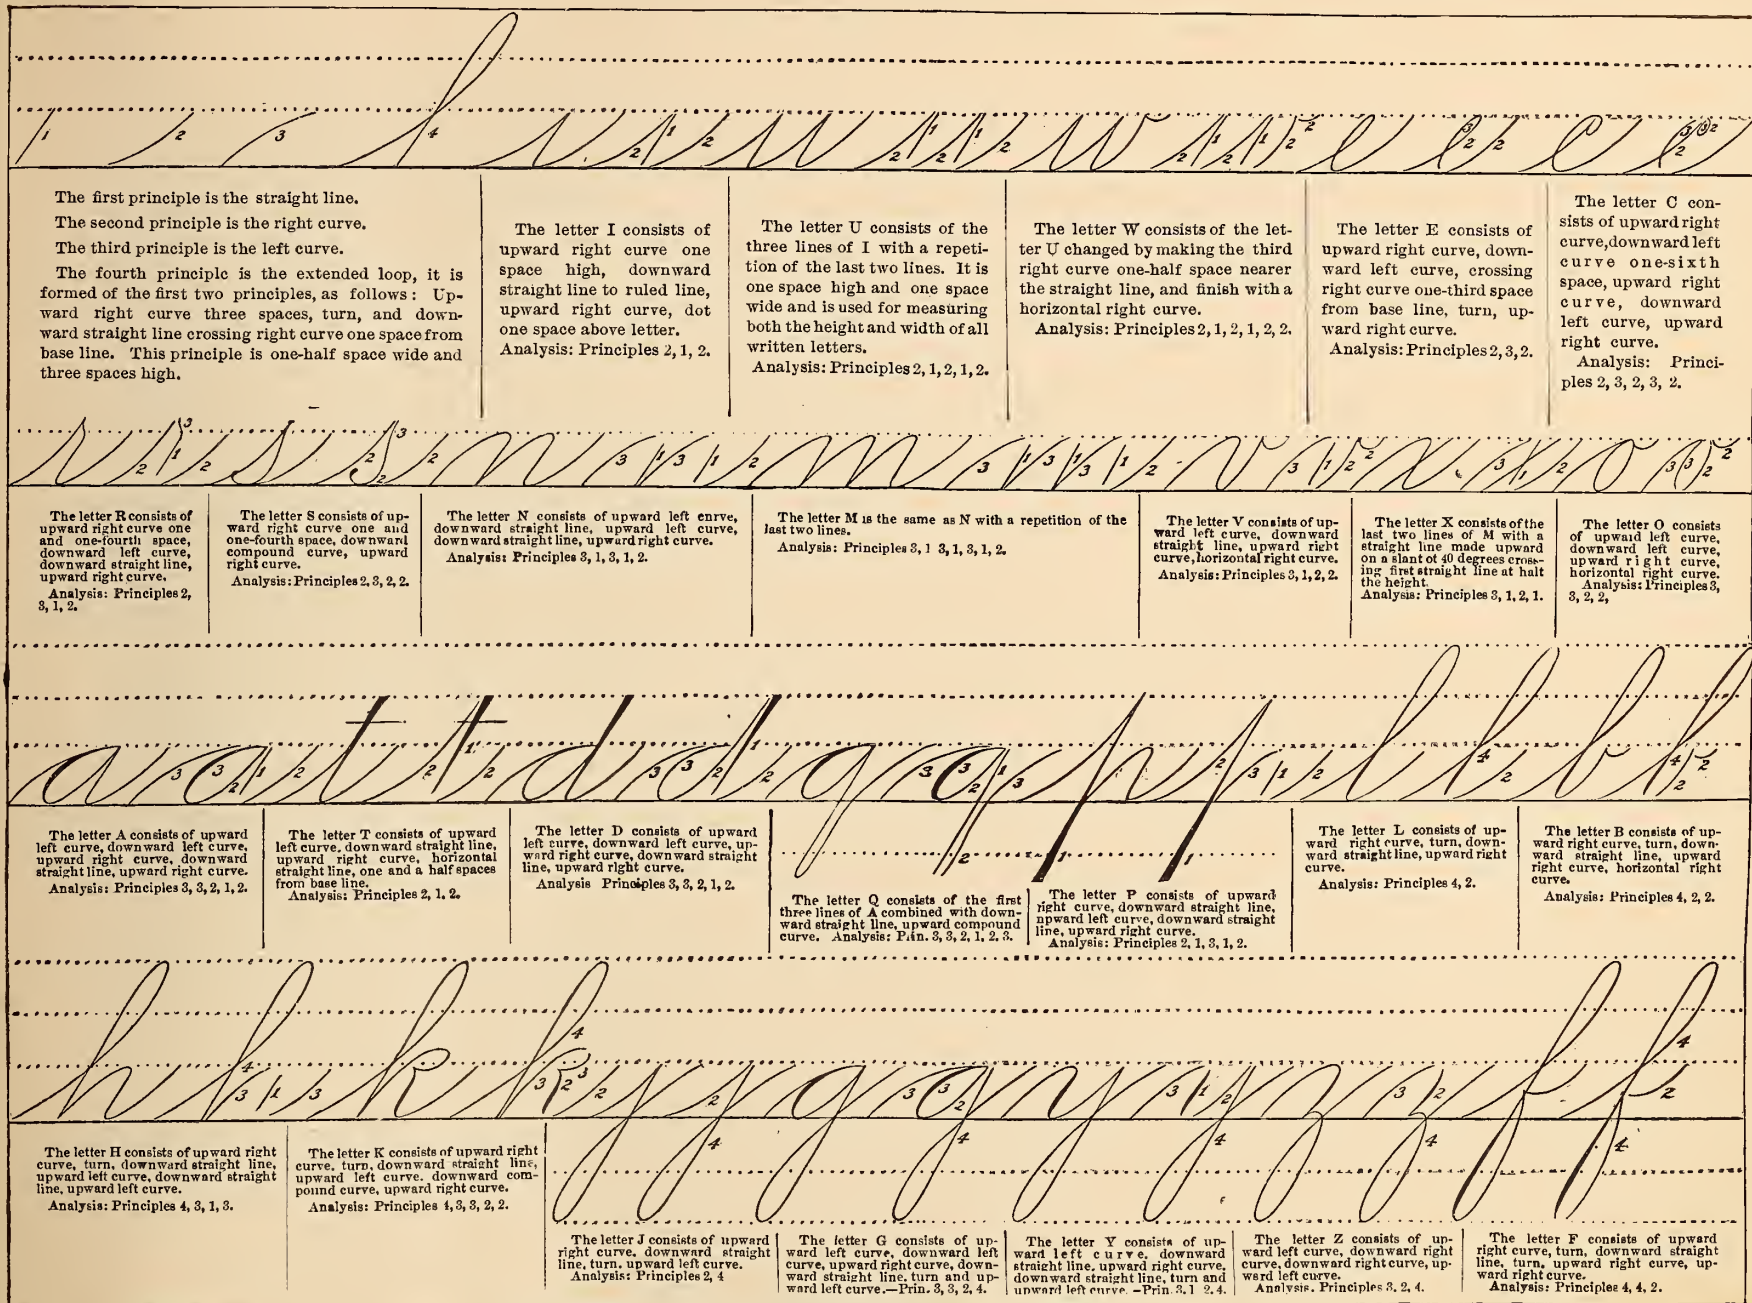 The first principle is the straight line.
The second principle is the right curve.
The third principle is the left curve.
The fourth principle is the extended loop, it is
formed of the first two principles, as follows: Up-
ward right curve three spaces, turn, and down-
ward straight line crossing right curve one space from
base line. This principle is one-half space wide and
three spaces high.
The letter I consists of
upward right curve one
space high, downward
straight line to ruled line,
upward right curve, dot
one space above letter.
Analysis: Principles 2, 1, 2.
The letter U consists of the
three lines of I with a repeti-
tion of the last two lines. It is
one space high and one space
wide and is used for measuring
both the height and width of all
written letters.
Analysis: Principles 2, 1, 2, 1, 2.
The letter W consists of the let-
ter U changed by making the third
right curve one-half space nearer
the straight line, and finish with a
horizontal right curve.
Analysis: Principles 2, 1, 2, 1, 2, 2.
The letter E consists of
upward right curve, down-
ward left curve, crossing
right curve one-third space
from base line, turn, up-
ward right curve.
Analysis: Principles 2, 3, 2.
The letter C con-
sists of upward right
curve, downward left
curve one-sixth
space, upward right
curve, downward
left curve, upward
right curve.
Analysis: Princi-
ples 2, 3, 2, 3, 2.
The letter R consists of
upward right curve one
and one-fourth space,
downward left curve,
downward straight line,
upward right curve.
Analysis: Principles 2,
3, 1, 2.
The letter S consists of up-
ward right curve one and
one-fourth space, downward
compound curve, upward
right curve.
Analysis: Principles 2, 3, 2, 2.
The letter N consists of upward left enrve,
downward straight line, upward left curve,
downward straight line, upward right curve.
Analysis: Principles 3, 1, 3, 1, 2.
The letter M is the same as N with a repetition of the
last two lines.
Analysis: Principles 3, 1 3, 1, 3, 1, 2.
The letter V consists of up-
ward left curve, downward
straight line, upward right
curve, horizontal right curve.
Analysis: Principles 3, 1, 2, 2.
The letter X consists of the
last two lines of M with a
straight line made upward
on a slant of 40 degrees cross-
ing first straight line at half
the height.
Analysis: Principles 3, 1, 2, 1.
The letter O consists
of upward left curve,
downward left curve,
upward right curve,
horizontal right curve.
Analysis: Principles 3,
3, 2, 2,
The letter A consists of upward
left curve, downward left curve,
upward right curve, downward
straight line, upward right curve.
Analysis: Principles 3, 3, 2, 1, 2.
The letter T consists of upward
left curve. downward straight line,
upward right curve, horizontal
straight line, one and a half spaces
from base line.
Analysis: Principles 2, 1. 2.
The letter D consists of upward
left curve, downward left curve, up-
ward right curve, downward straight
line, upward right curve.
Analysis Principles 3, 3, 2, 1, 2.
The letter Q consists of the first
three lines of A combined with down-
ward straight line, upward compound
curve. Analysis: Prin. 3, 3, 2, 1, 2. 3.
The letter P consists of upward
right curve, downward straight line,
npward left curve, downward straight
line, upward right curve.
Analysis: Principles 2, 1, 3, 1, 2.
The letter L consists of up-
ward right curve, turn, down-
ward straight line, upward right
curve.
Analysis: Principles 4, 2.
The letter B consists of up-
ward right curve, turn, down-
ward straight line, upward
right curve, horizontal right
curve.
Analysis: Principles 4, 2, 2.
The letter H consists of upward right
curve, turn, downward straight line,
upward left curve, downward straight
line, upward left curve.
Analysis: Principles 4, 3, 1, 3.
The letter K consists of upward right
curve. turn, downward straight line,
upward left curve. downward com-
pound curve, upward right curve.
Analysis: Principles 4, 3, 3, 2, 2.
The letter J consists of upward
right curve. downward straight
line, turn. upward left curve.
Analysis: Principles 2, 4
The letter G consists of up-
ward left curve, downward left
curve, upward right curve, down-
ward straight line, turn and up-
ward left curve.—Prin. 3, 3, 2, 4.
The letter Y consists of up-
ward left curve, downward
straight line, upward right curve,
downward straight line, turn and
upward left curve. —Prin. 3. 1 2. 4.
The letter Z consists of up-
ward left curve, downward right
curve, downward right curve, up-
ward left curve.
Analysis. Principles 3. 2, 4.
The letter F consists of upward
right curve, turn, downward straight
line, turn, upward right curve, up-
ward right curve.
Analysis: Principles 4, 4, 2.